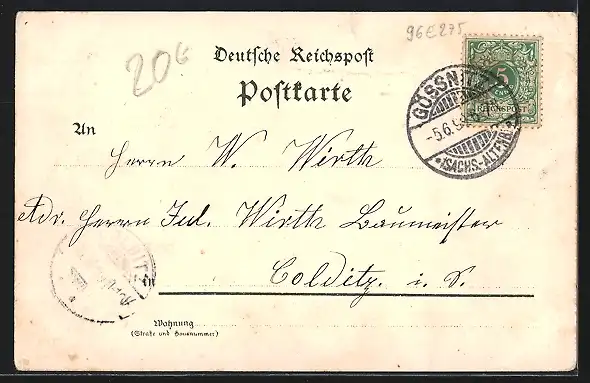 96E275
20G
Deutsche Reichspost
Postkarte
5
REICHSPOST
GÖSSNITZ
-5.6.
*(SACHS.-ALTENB.)
An
Herrn W. Wirth
Adr. Herrn Jul. Wirth Baumeister
in Colditz i. S.
Wohnung
(Straße und Hausnummer)